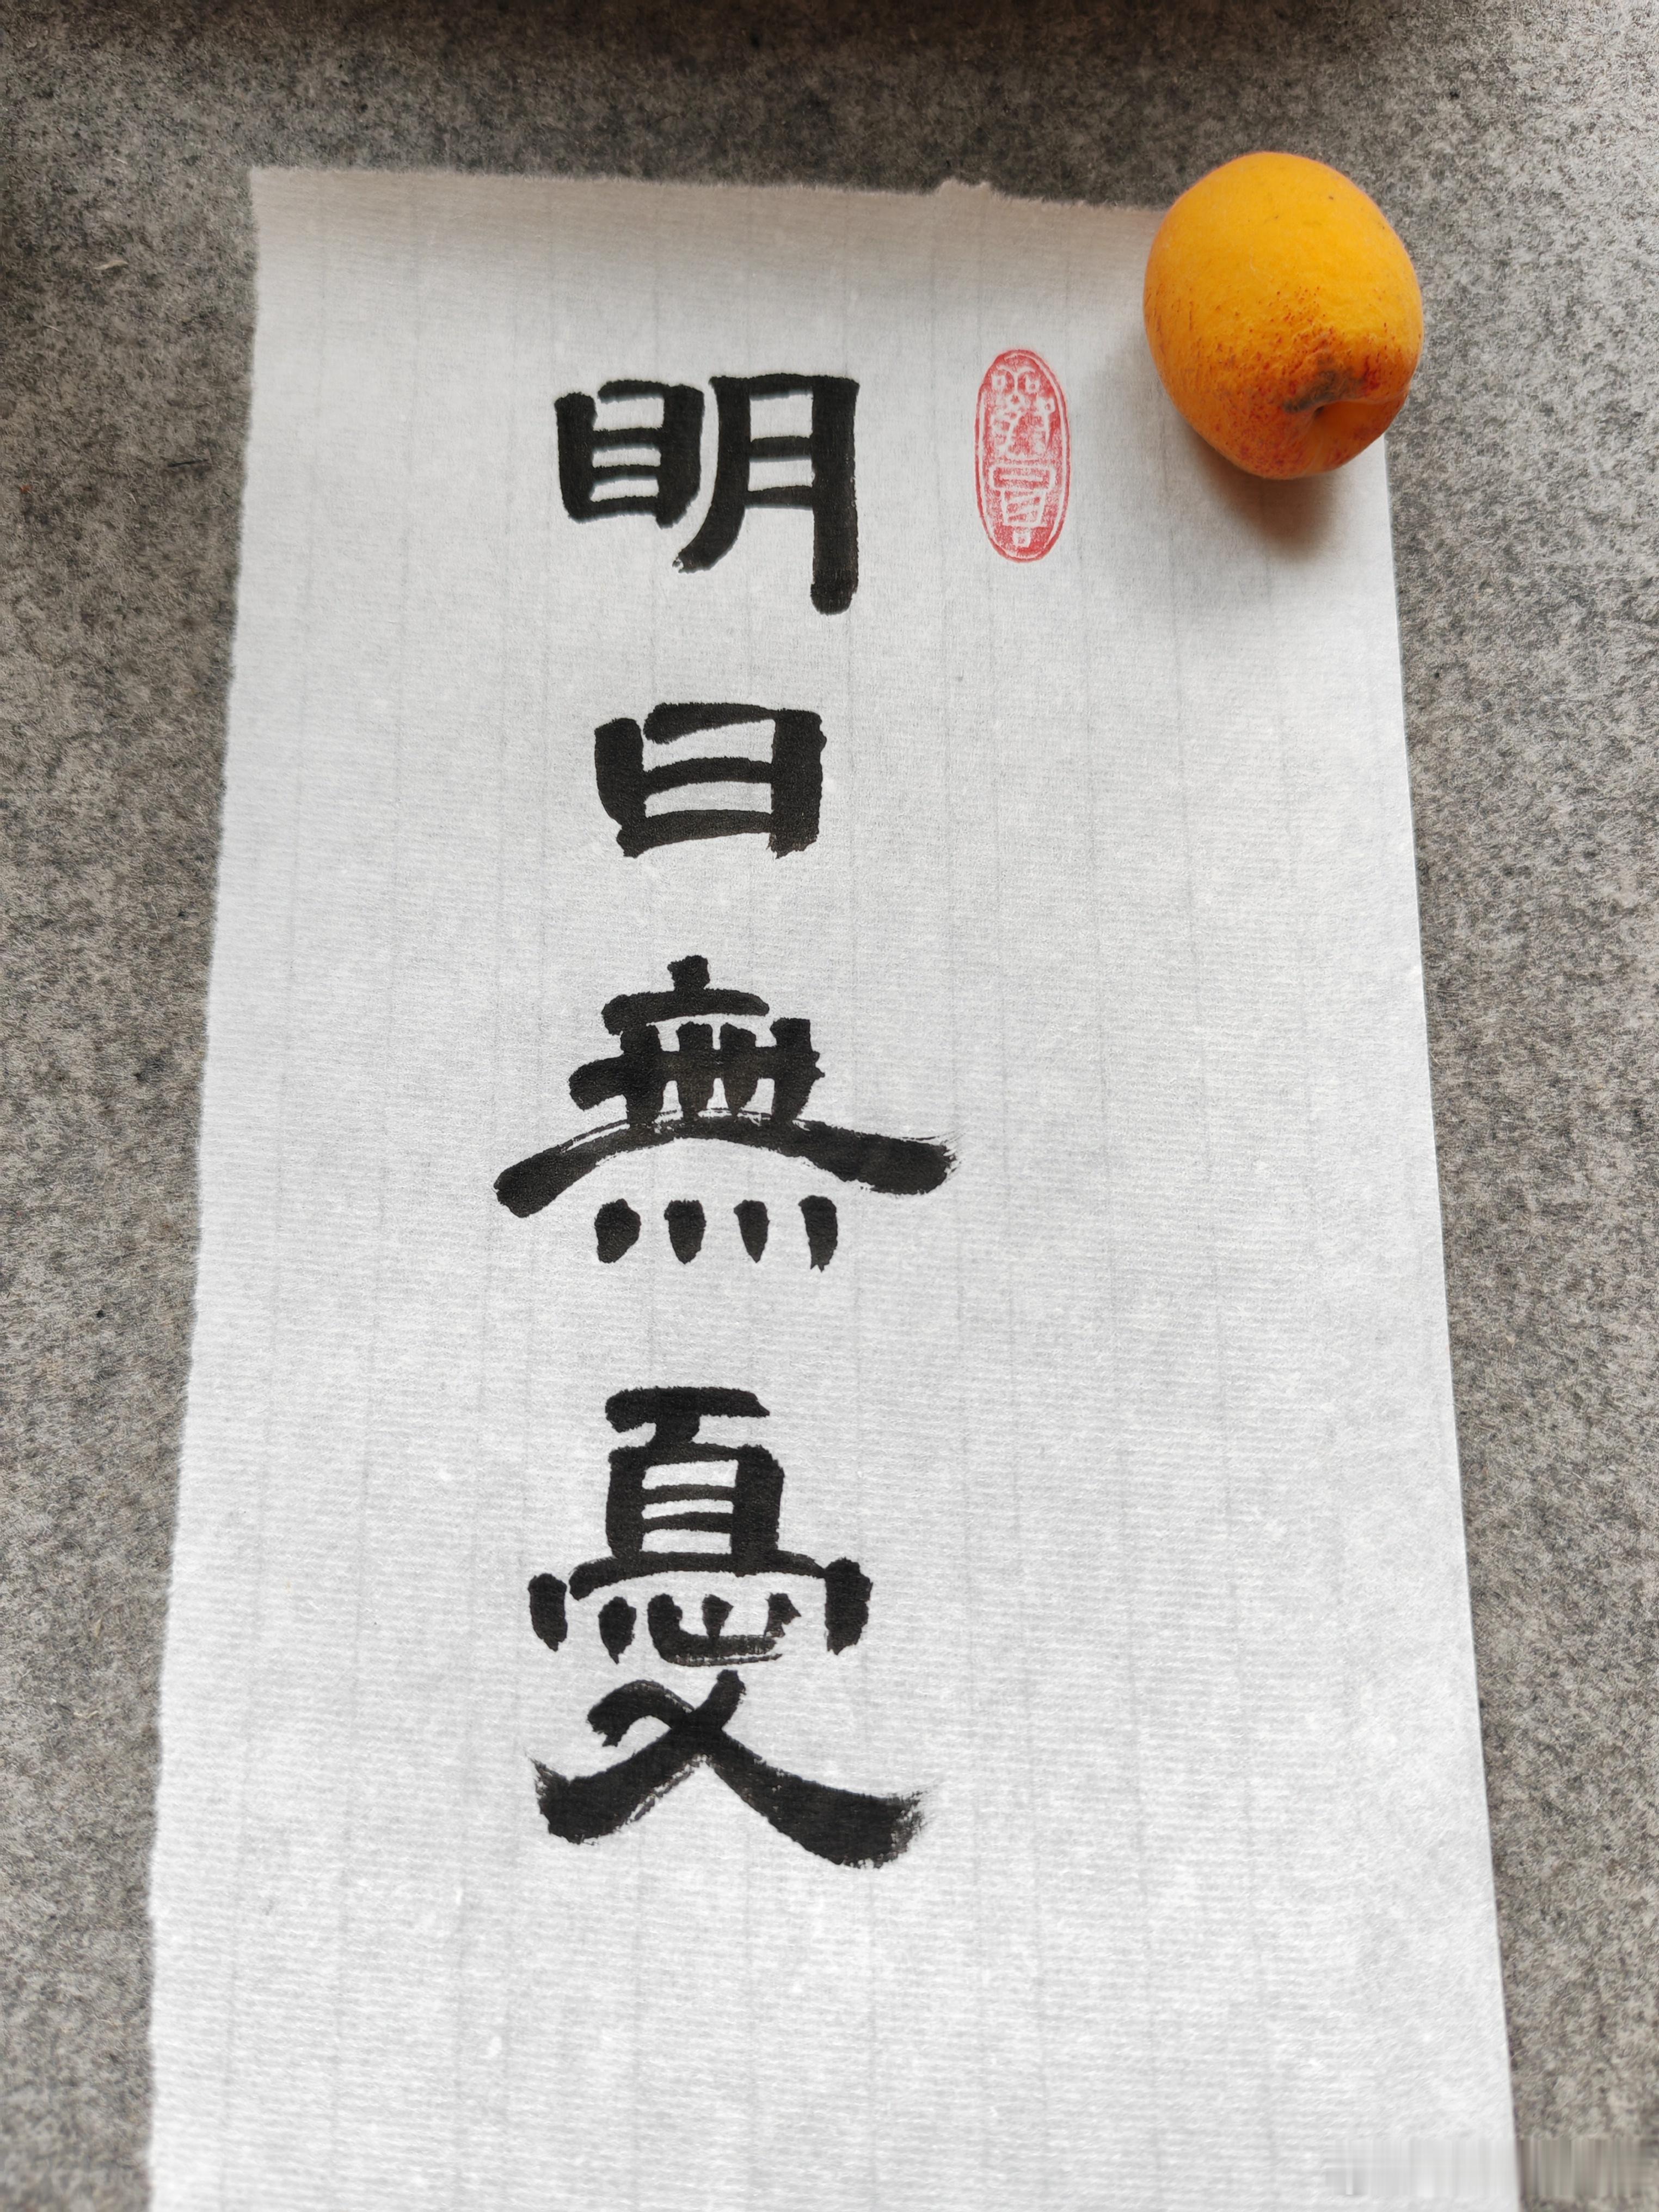 明日無憂